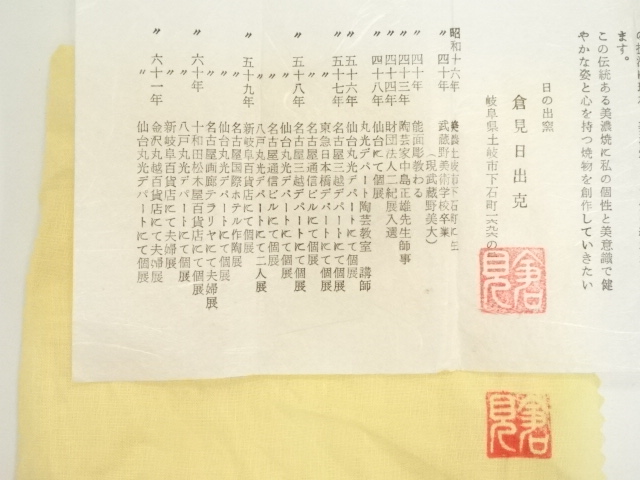 ます。
この伝統ある美濃焼に私の個性と美意識で健
やかな姿と心を持つ焼物を創作していきたい
日の出窯
倉見日出克
岐阜県土岐市下石町一六六の
昭和十六年
〃四十年 武蔵野美術学校卒業
(現武蔵野美大)
〃四十年 能面彫教わる
四十三年 陶芸家中島正雄先生師事
四十四年 財団法人二紀展入選
四十八年 仙台にて個展
〃 丸光デパート陶芸教室 講師
五十六年 仙台丸光デパートにて個展
五十七年 名古屋三越デパートにて個展
〃 東急日本橋デパートにて個展
〃 名古屋通信ビルにて個展
五十八年 名古屋三越デパートにて個展
〃 仙台丸光デパートにて個展
〃 名古屋通信ビルにて個展
〃 八戸丸光デパートにて二人展
五十九年 新岐阜百貨店にて個展
〃 名古屋国際ホテル作陶展
〃 仙台丸光デパートにて個展
〃 名古屋画廊テラリヤにて夫婦展
六十年 十和田松木屋百貨店にて個展
〃 八戸丸光デパートにて個展
〃 新岐阜百貨店にて夫婦展
六十一年 金沢丸越百貨店にて夫婦展
〃 仙台丸光デパートにて個展
倉見
倉見